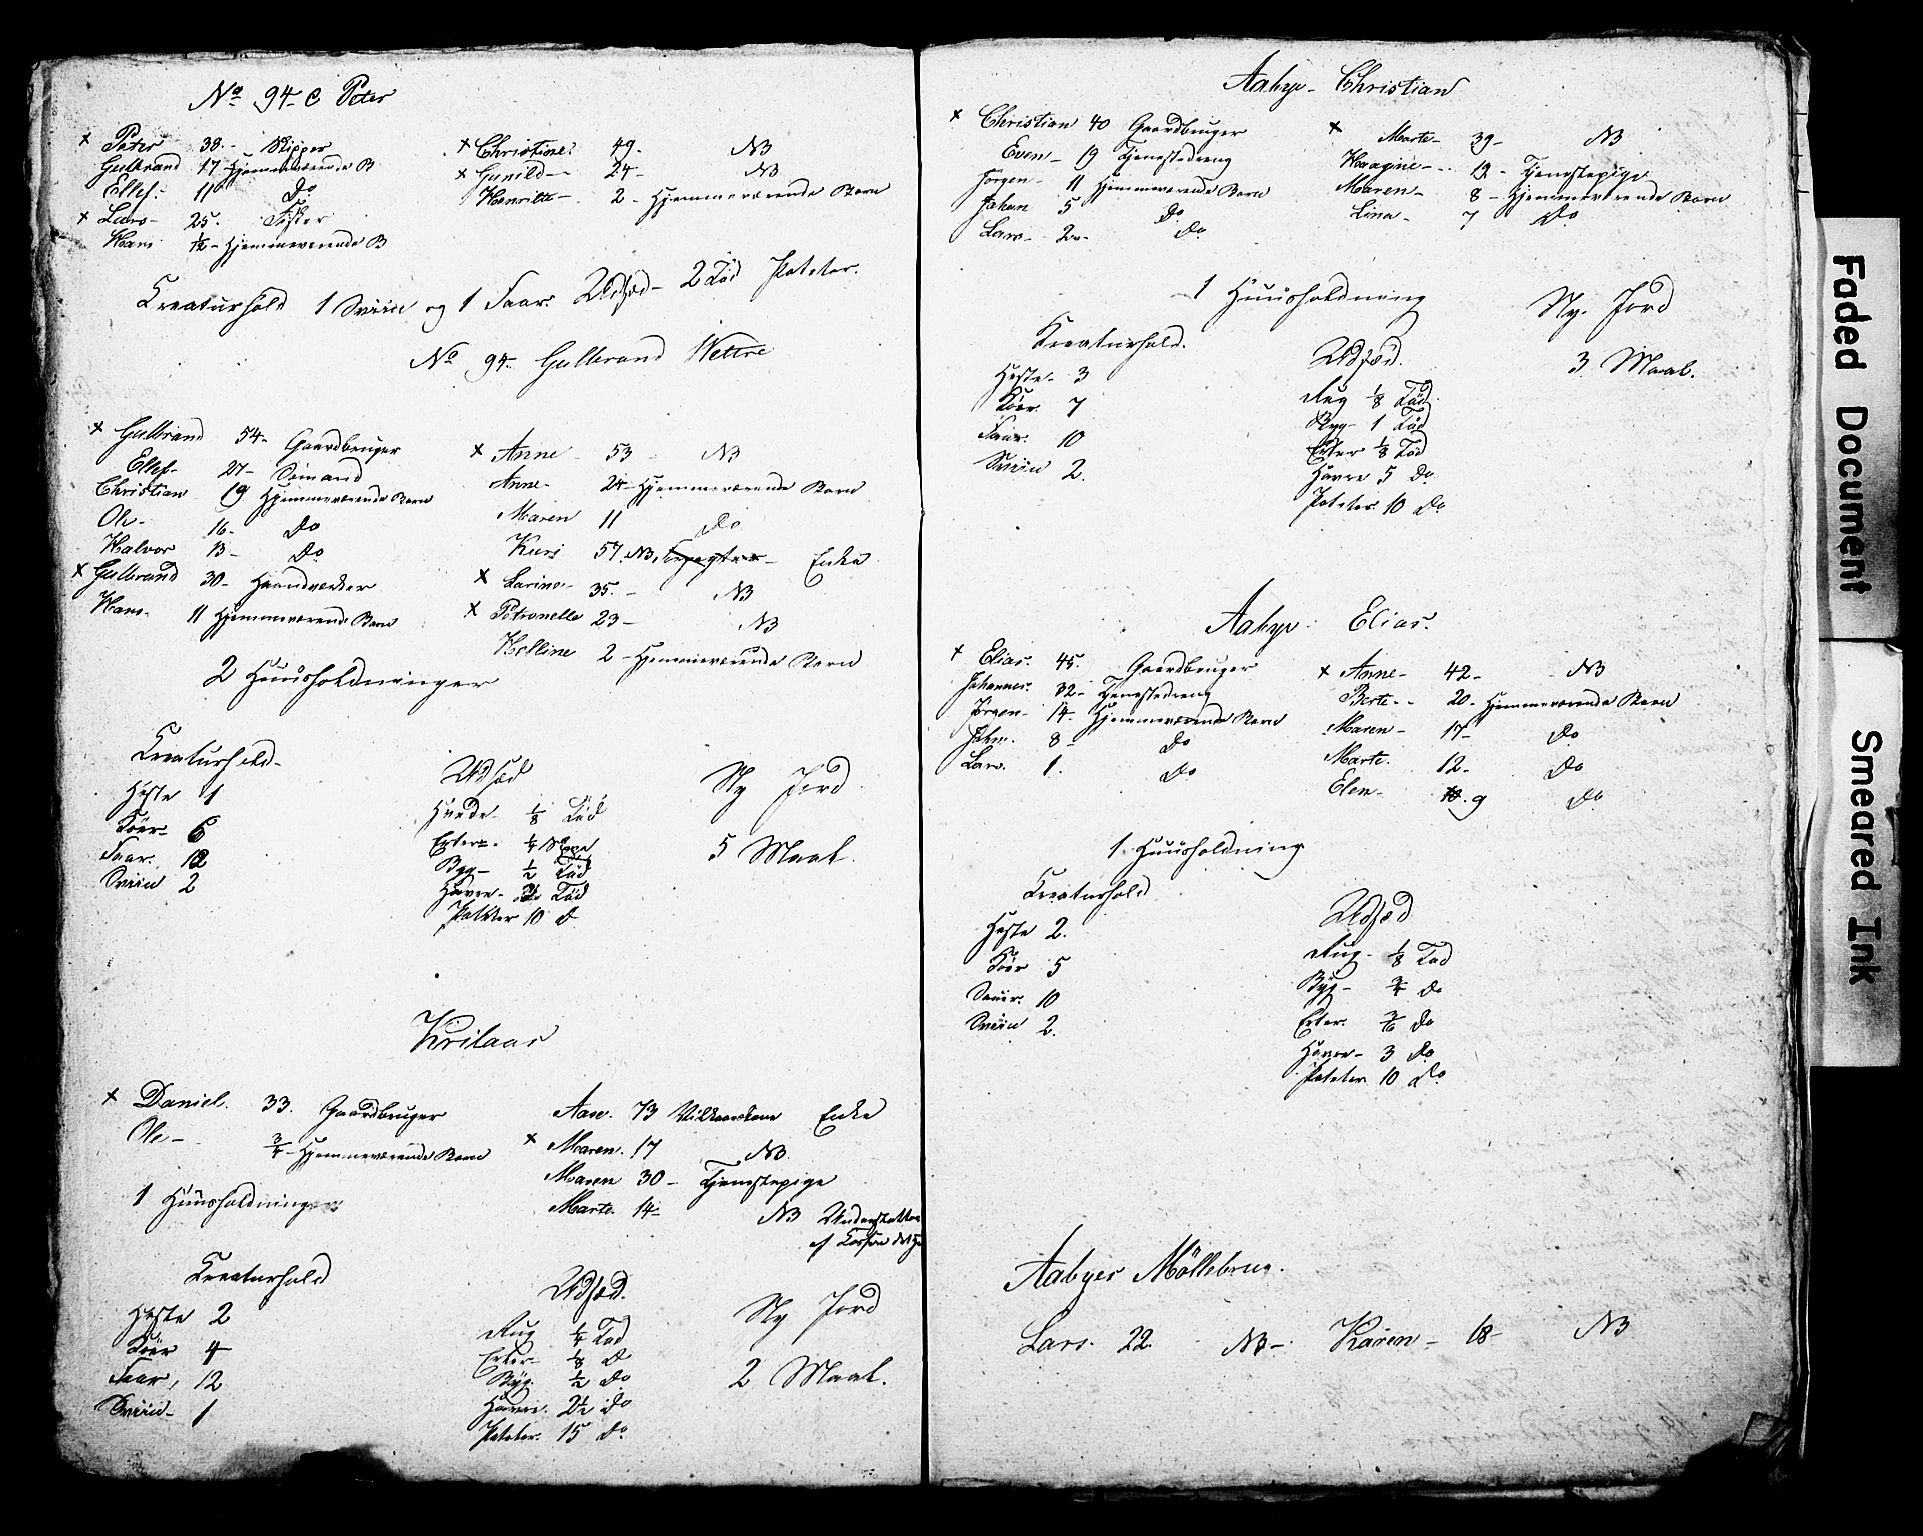 No 94 C Peter
× Peter 38 - Skipper × Christine 49 - NB
Gulbrand 17 Hjemmeværende B × Gunild - 24 - NB
Ellef 11 Do Henrikke - 2 - Hjemmeværende Barn
× Lars - 25 - Fisker
Hans - Hjemmeværende B
Creaturhold 1 Sviin og 1 Faar Udsæd - 2 Tød Poteter.
No 94 Gulbrand Wettre
× Gulbrand 54 - Gaardbruger × Anne - 53 - NB
Ellef - 27 - Sømand Anne - 24 - Hjemmeværende Barn
Christian 19 Hjemmeværende Barn Maren 11 Do
Ole - 16 - Do Kari 57. NB. Enke
Halvor 13 - Do × Larine - 35 - NB
× Gulbrand 30 - Haandverker × Petronelle 23 - NB
Hans - 11 Hjemmeværende Barn Helline 2 - Hjemmeværende Barn
2 Huusholdninger
Creaturhold - Udsæd Ny Jord
Heste 1 Hvede - 1/8 Tød
Kiør 6 Erter - 1/4 5 Maal.
Faar 12 Byg - 1/2 Tød
Sviin 2 Havre - Tød
Poteter 10 d
Krilaas
× Daniel. 33. Gaardbruger Aase. 73 Vilkaarskone Enke
Ole - 3/4 - Hjemmeværende Barn × Maren. 17 NB.
Maren 30 - Tjenestepige
1 Huusholdninger Marte. 14 - NB Understøttes
af
Creaturhold Udsæd. Ny Jord
Heste 2 Rug 1/4 Tød
Kiør 4 Erter - 1/8 D 2 Maal.
Faar, 12 Byg. 1/2 Do
Sviin - 1 Havre. 2 1/2 Do
Poteter. 15 Do
Aabye - Christian
× Christian 40 Gaardbruger × Marte - 39 - NB
Even - 19 Tjenestedreng Haagine - 12 - Tjenestepige
Jørgen - 11 Hjemmeværende Barn Maren - 8 - Hjemmeværende Barn
Johan 5 Do Lina - 7 Do
Lars - 2 - Do
1 Huusholdning Ny. Jord
Kreaturhold. Udsæd. 3 Maal.
Heste - 3 Rug 1/8 Tød
Kiør. 7 Byg - 1 Tød
Faar. 10 Erter 1/8 Tød
Sviin 2. Havre 5 Do
Poteter 10 Do
Aabye Elias.
× Elias. 45. Gaardbruger × Anne - 42 - NB
Johannes. 32 - Tjenestedreng Berte - 20 - Hjemmeværende Barn
Jørgen - 14 - Hjemmeværende Barn Maren - 17 - Do
John. 8 - Do Marte. 12 - Do
Lars. 1. Do Elen - 9 Do
1 Huusholdning
Creaturhold Udsæd
Heste 2. Rug - 1/8 Tød
Kiør 5 Byg - 3/4 Do
10 Erter. Do
Sviin 2. Havre - 3 Do
Poteter 10 Do
Aabyes Möllebrug.
Lars. 22. NB - Karen - 18 - NB
Faded Document
Smeared Ink